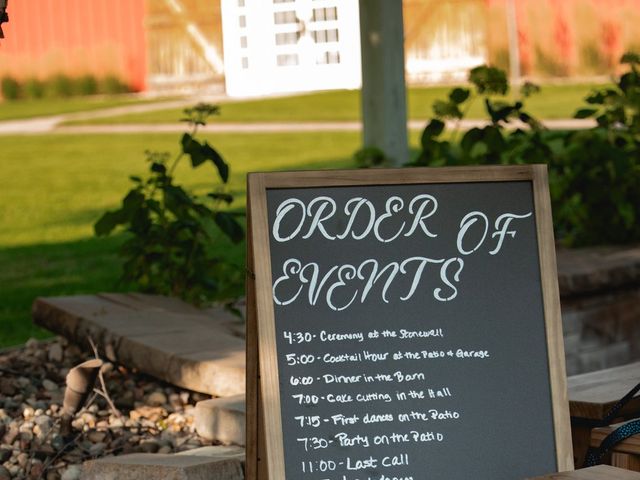 ORDER OF
EVENTS
4:30 - Ceremony at the Stonewell
5:00 - Cocktail Hour at the Patio & Garage
6:00 - Dinner in the Barn
7:00 - Cake cutting in the Hall
7:15 - First dances on the Patio
7:30 - Party on the Patio
11:00 - Last Call